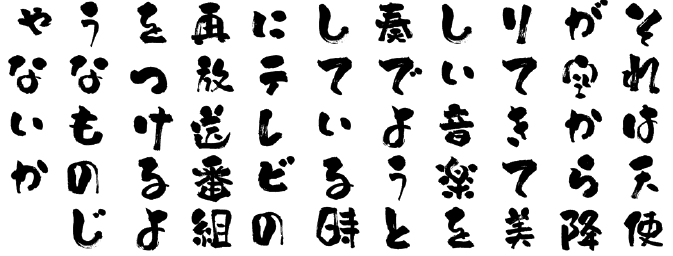 それは天使
が空から降
りてきて美
しい音楽を
奏でようと
している時
にテレビの
再放送番組
をつけるよ
うなものじ
ゃないか